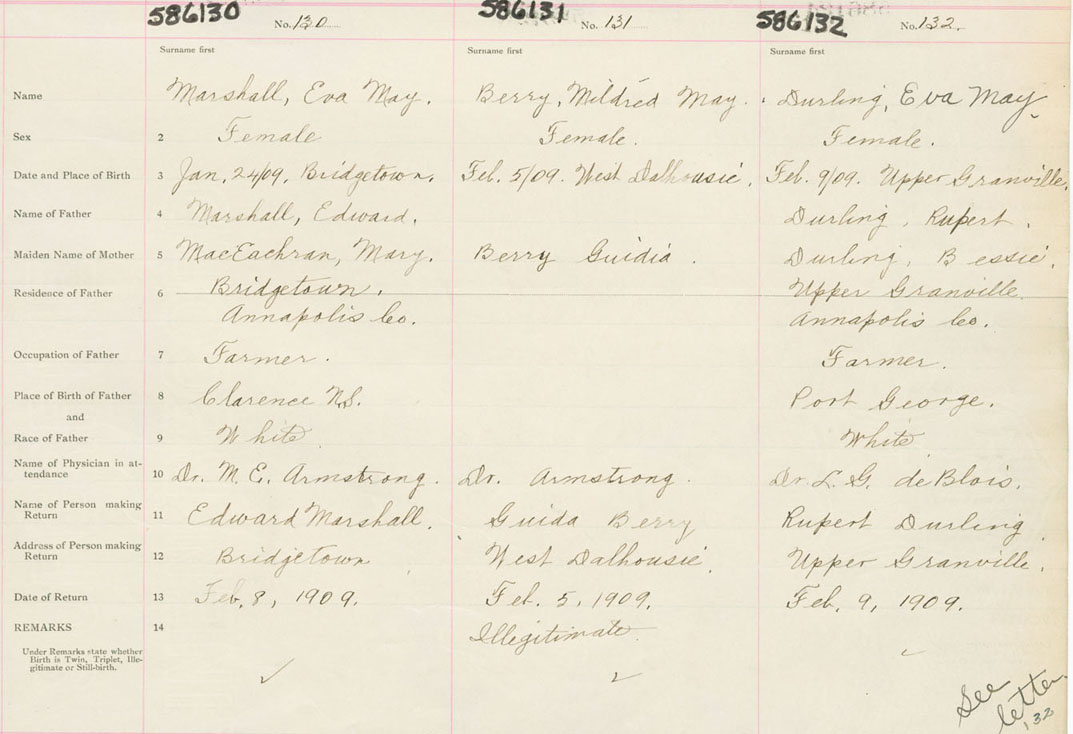 586130 No. 130 586131 No. 131 586132 No. 132.
Surname first Surname first Surname first
Name Marshall, Eva May. Berry, Mildred May. Durling, Eva May.
Sex 2 Female Female. Female.
Date and Place of Birth 3 Jan, 24/09, Bridgetown. Feb. 5/09. West Dalhousie. Feb. 9/09. Upper Granville.
Name of Father 4 Marshall, Edward. Durling, Rupert.
Maiden Name of Mother 5 MacEachran, Mary. Berry Guidia. Durling, Bessie.
Residence of Father 6 Bridgetown. Upper Granville
Annapolis Co. Annapolis Co.
Occupation of Father 7 Farmer. Farmer.
Place of Birth of Father 8 Clarence N.S. Port George.
and
Race of Father 9 White White
Name of Physician in at-
tendance 10 Dr. M. E. Armstrong. Dr. Armstrong. Dr. L. G. deBlois.
Name of Person making
Return 11 Edward Marshall. Guida Berry Rupert Durling
Address of Person making
Return 12 Bridgetown West Dalhousie. Upper Granville.
Date of Return 13 Feb. 8, 1909. Feb. 5, 1909. Feb. 9, 1909.
REMARKS 14 Illegitimate.
Under Remarks state whether
Birth is Twin, Triplet, Ille-
gitimate or Still-birth.
See
letter
132